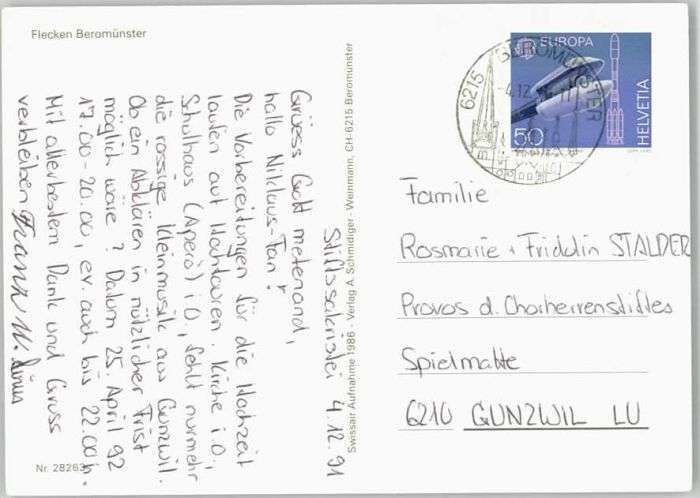 Flecken Beromünster
Stiftssakristei 4.12.91
Grüess Gott mitenand,
hallo Niklaus-Fan!
Die Vorbereitungen für die Hochzeit
laufen auf Hochtouren. Kirche i.O.,
Schulhaus (Apéro) i.O., fehlt nurmehr
die rassige Kleinmusik aus Gunzwil.
Ob ein Abklären in nützlicher Frist
möglich wäre? Datum 25. April 92
17.00-20.00, ev. auch bis 22.00 h.
Mit allerbestem Dank und Gruss
verbleiben Franz
Nr. 28263
Swissair Aufnahme 1986 - Verlag A. Schmidiger - Weinmann, CH-6215 Beromünster
6215 BEROMÜNSTER
-4.12.
EUROPA
50
HELVETIA
Familie
Rosmarie + Fridolin STALDER
Provos d. Chorherrenstiftes
Spielmatte
6210 GUNZWIL LU